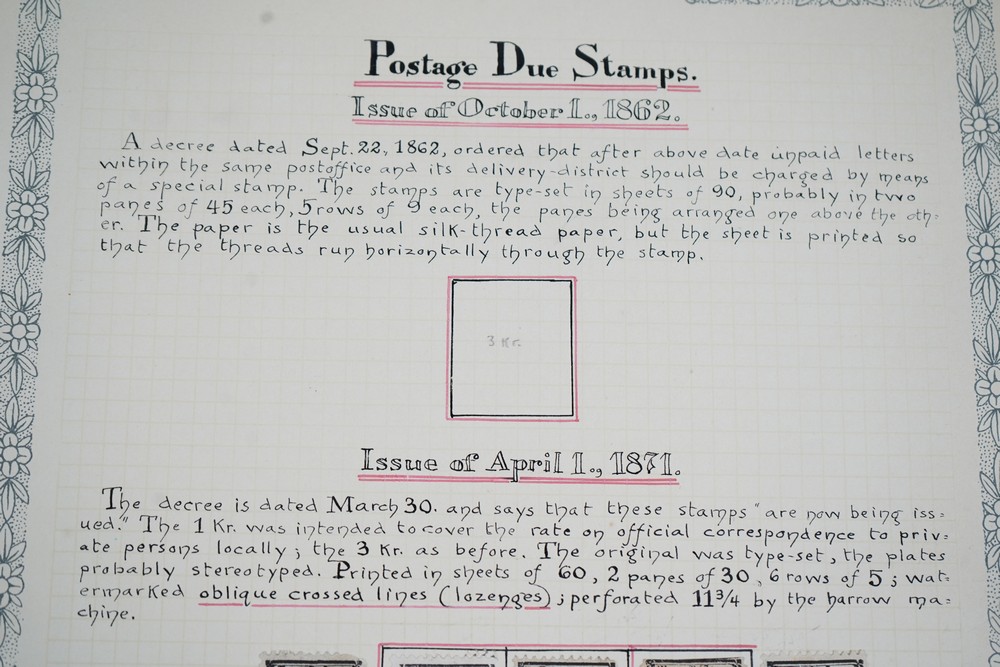 Postage Due Stamps.
Issue of October 1., 1862.
A decree dated Sept. 22, 1862, ordered that after above date unpaid letters
within the same postoffice and its delivery-district should be charged by means
of a special stamp. The stamps are type-set in sheets of 90, probably in two
panes of 45 each, 5 rows of 9 each, the panes being arranged one above the oth=
er. The paper is the usual silk-thread paper, but the sheet is printed so
that the threads run horizontally through the stamp.
3 Kr.
Issue of April 1., 1871.
The decree is dated March 30. and says that these stamps "are now being iss=
ued." The 1 Kr. was intended to cover the rate on official correspondence to priv=
ate persons locally; the 3 Kr. as before. The original was type-set, the plates
probably stereotyped. Printed in sheets of 60, 2 panes of 30, 6 rows of 5; wat=
ermarked oblique crossed lines (lozenges); perforated 11 3/4 by the harrow ma=
chine.